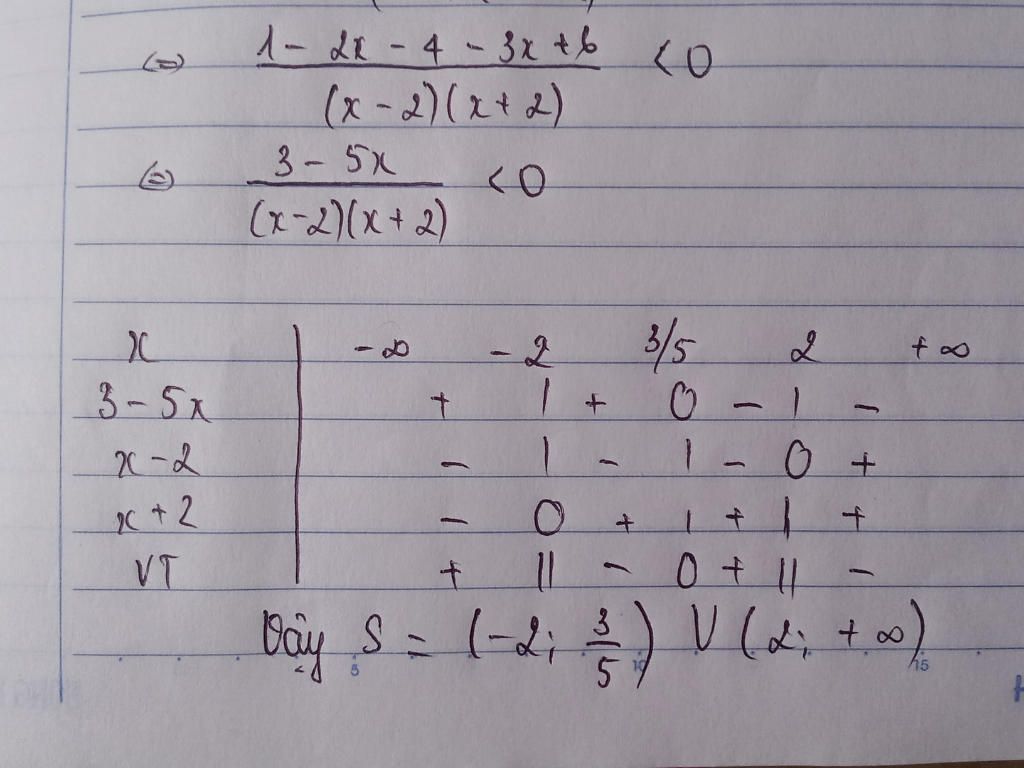 (=) 1 - 2x - 4 - 3x + 6 / (x - 2)(x + 2) < 0
(=) 3 - 5x / (x - 2)(x + 2) < 0
x | -∞ -2 3/5 2 +∞
3 - 5x | + | + 0 - | -
x - 2 | - | - | - 0 +
x + 2 | - 0 + | + | +
VT | + || - 0 + || -
Vậy S = (-2; 3/5) ∪ (2; +∞)
5 10 15